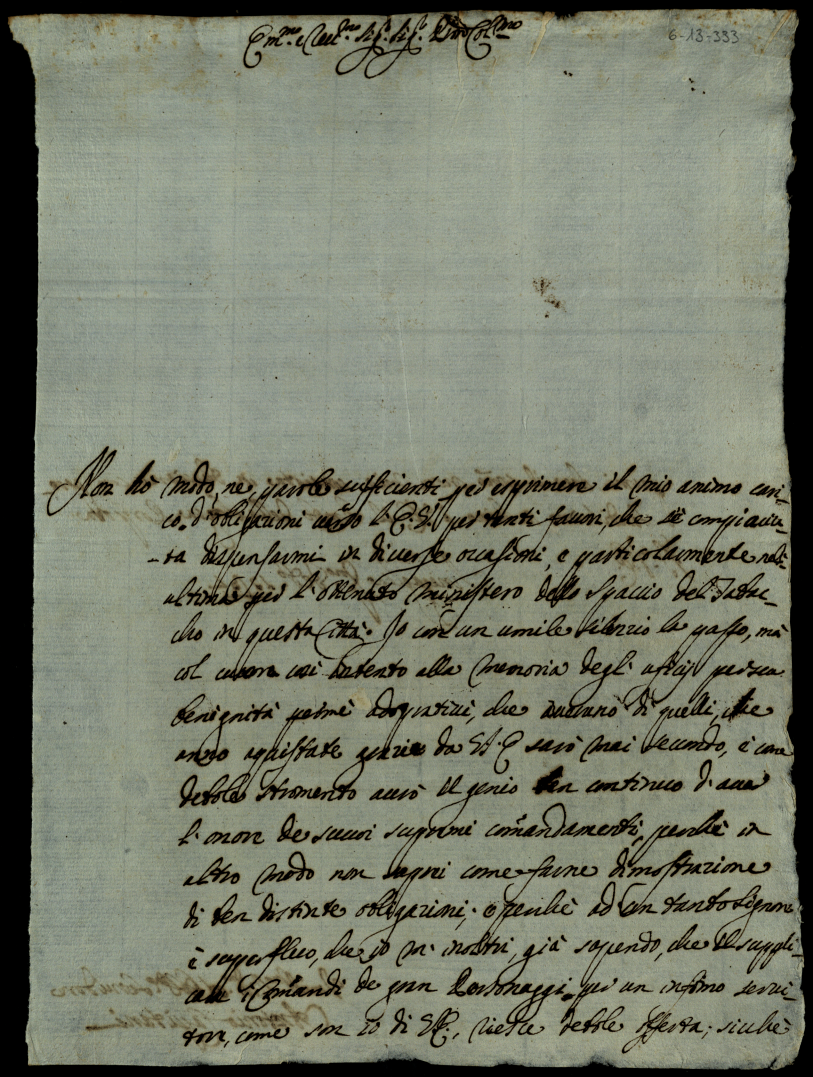 Em.mo e Rev.mo Sig.r Sig.r P.ron Col.mo
6-13-333
Non hò modo, ne parole sufficienti per esprimere il mio animo cari-
co d'obligazioni verso l'E.V. per tanti favori, che si è compiaciu-
ta dispensarmi in diverse occasioni, e particolarmente nell'
ultima per l'ottenuto ministero dello Spaccio del Tabac-
cho in questa Città. Io con un umile silenzio la passo, mà
col cuore così intento alla memoria degl'uficij per sua
benignità per me adoprativi, che di quelli, che
anno aquistate grazie da V.E. sarò mai secondo, e come
debole stromento avrò il genio ben continuo d'aver
l'onore de suoi supremi comandamenti, perchè in
altro modo non saprei come farne dimostrazione
di ben distinte obligazioni; e perchè ad un tanto Signore
è superfluo, che io m'inoltri, già sapendo, che il suppli-
care i Comandi de gran Personaggi per un infimo servi-
tore, come son io di V.E., riesce debole offerta; sicchè